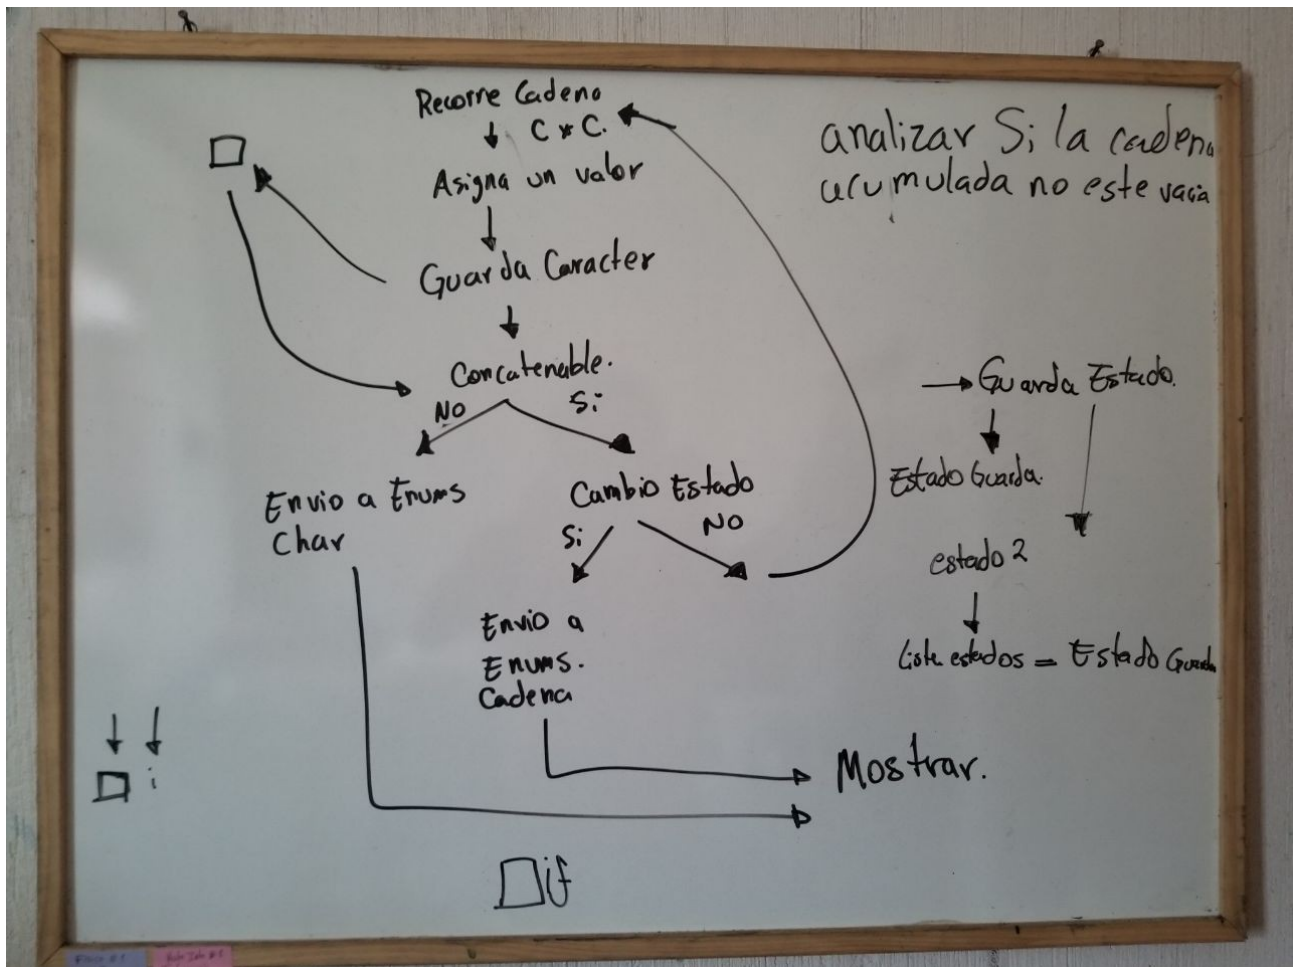 Recorre Cadena
C x C.
Asigna un valor
Guarda Caracter
Concatenable.
NO
Si
Envio a Enums
Char
Cambio Estado
Si
NO
Envio a
Enums.
Cadena
Mostrar.
analizar Si la cadena
acumulada no este vacia
Guarda Estado.
Estado Guarda.
estado 2
Lista estados = Estado Guarda
i
if